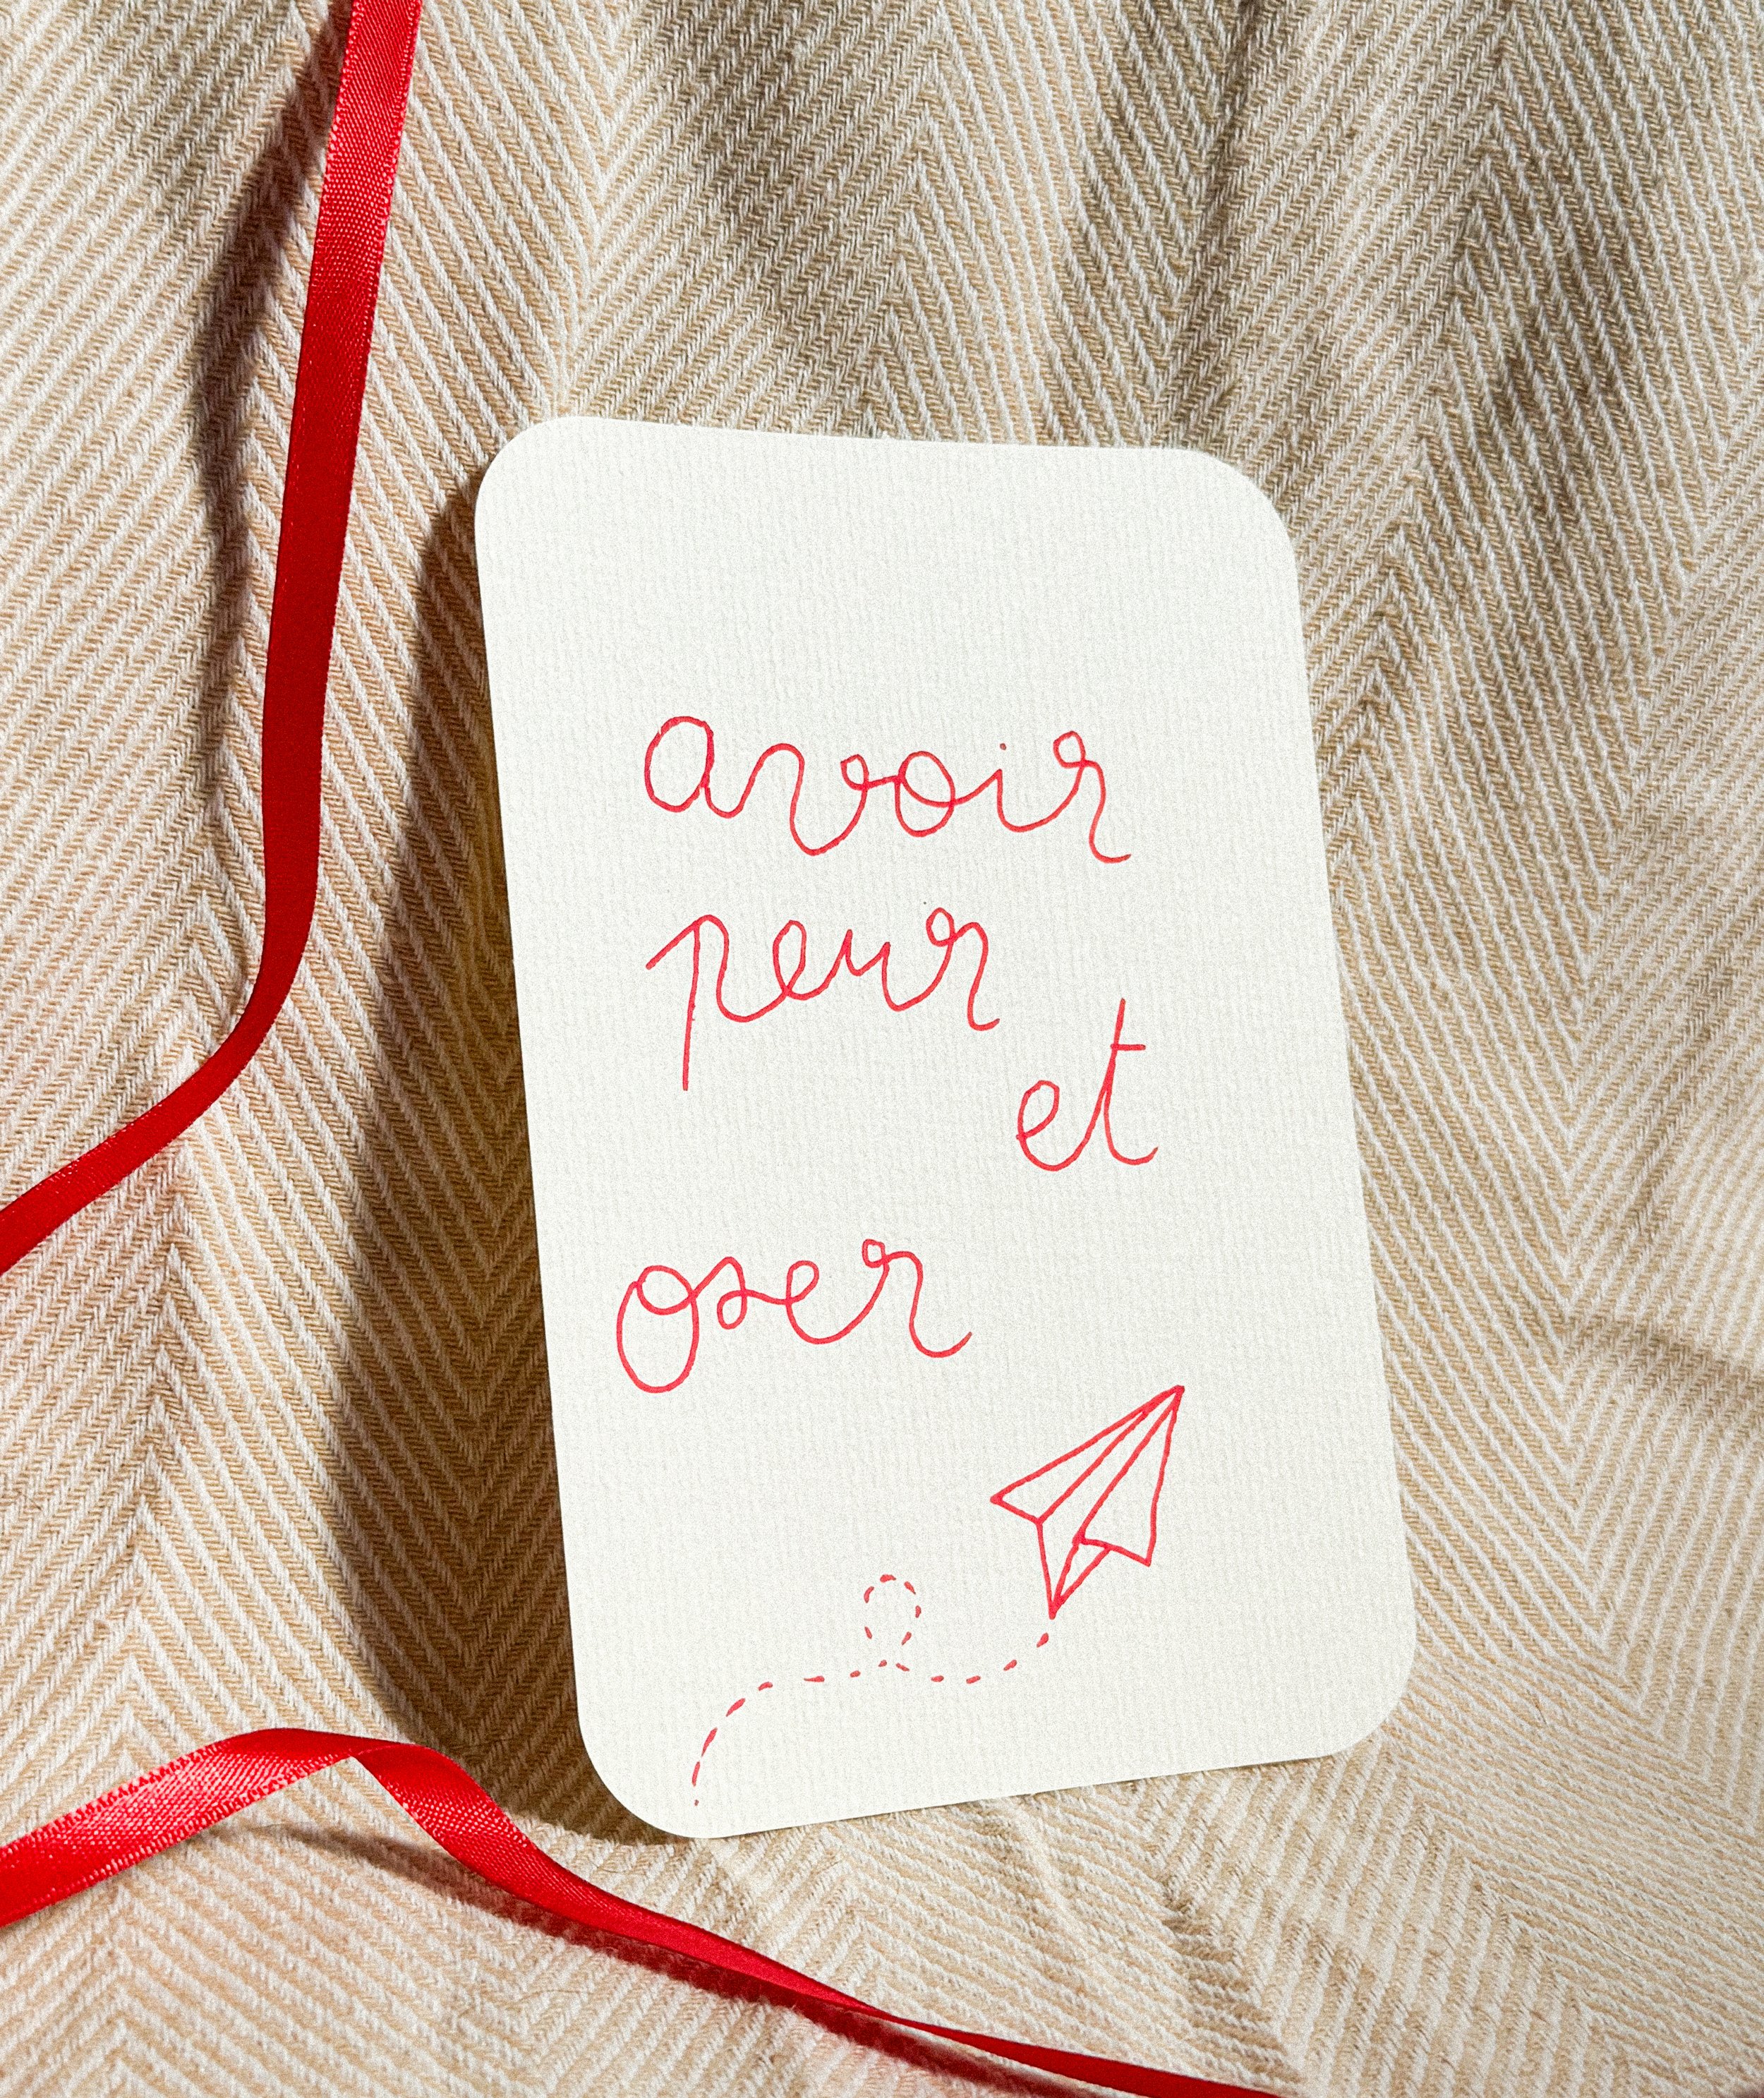 avoir
peur
et
oser